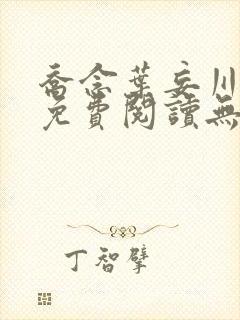 喬念葉妄川
免費閱讀無
丁智擘